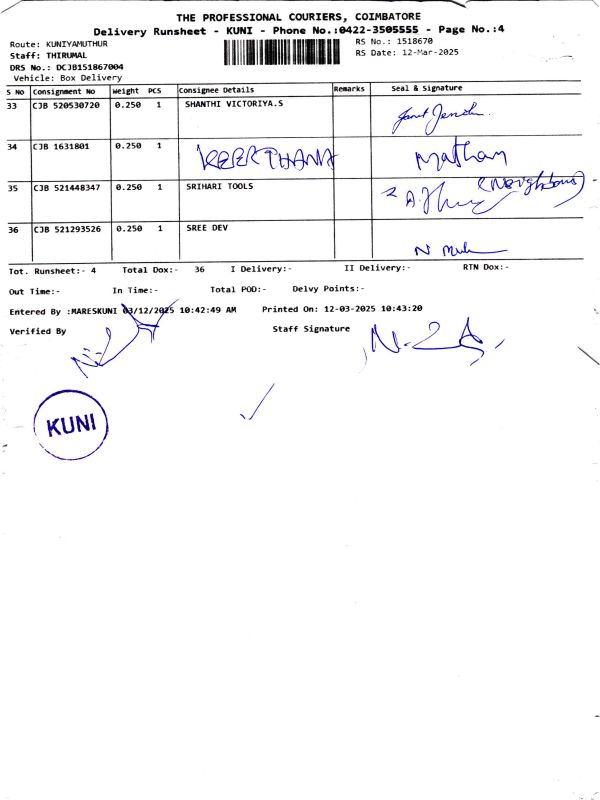 THE PROFESSIONAL COURIERS, COIMBATORE
Delivery Runsheet - KUNI - Phone No.:0422-3505555 - Page No.:4
Route: KUNIYAMUTHUR
RS No.: 1518670
Staff: THIRUMAL
RS Date: 12-Mar-2025
DRS No.: DCJB151867004
Vehicle: Box Delivery
S No Consignment No Weight PCS Consignee Details Remarks Seal & Signature
33 CJB 520530720 0.250 1 SHANTHI VICTORIYA.S
34 CJB 1631801 0.250 1 KEERTHANA Mathan
35 CJB 521448347 0.250 1 SRIHARI TOOLS (Neighbour)
36 CJB 521293526 0.250 1 SREE DEV
Tot. Runsheet:- 4 Total Dox:- 36 I Delivery:- II Delivery:- RTN Dox:-
Out Time:- In Time:- Total POD:- Delvy Points:-
Entered By :MARESKUNI 03/12/2025 10:42:49 AM Printed On: 12-03-2025 10:43:20
Verified By Staff Signature
KUNI